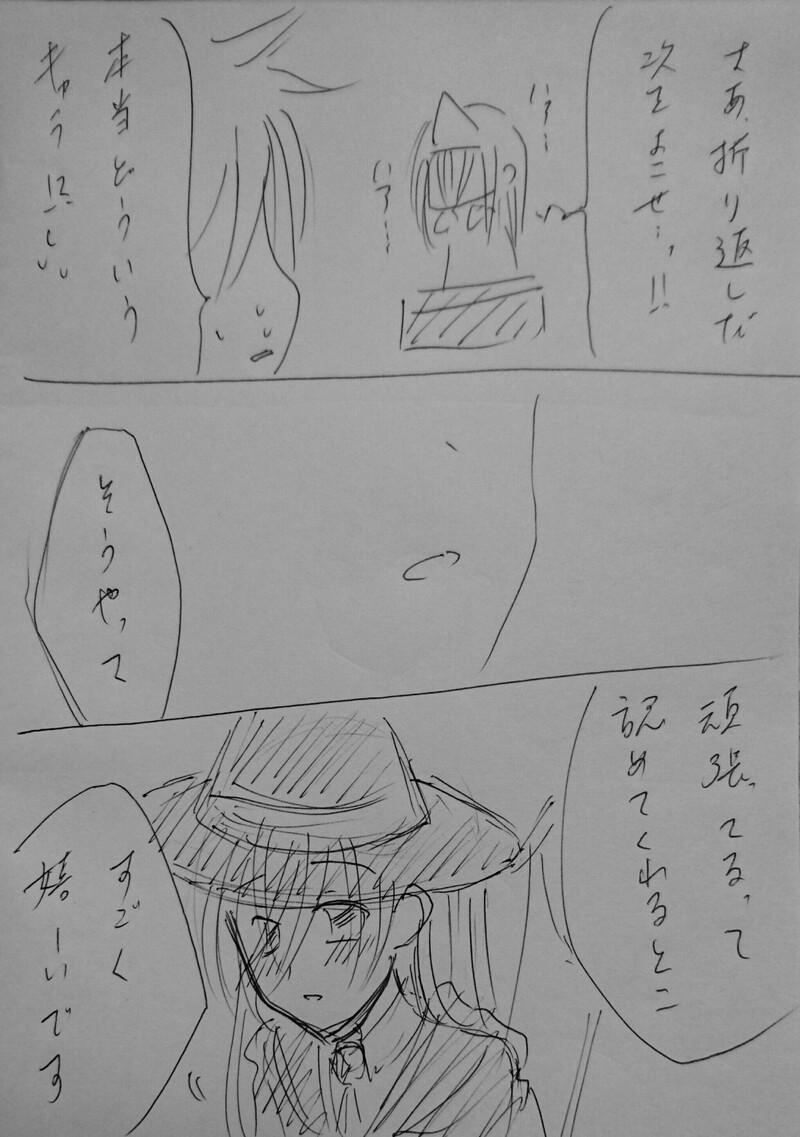 さあ、折り返しだ
次をよこせ…っ!!
ハァ…
ハァ…
本当どういう
そうやって
頑張ってるって
認めてくれるとこ
すごく
嬉しいです